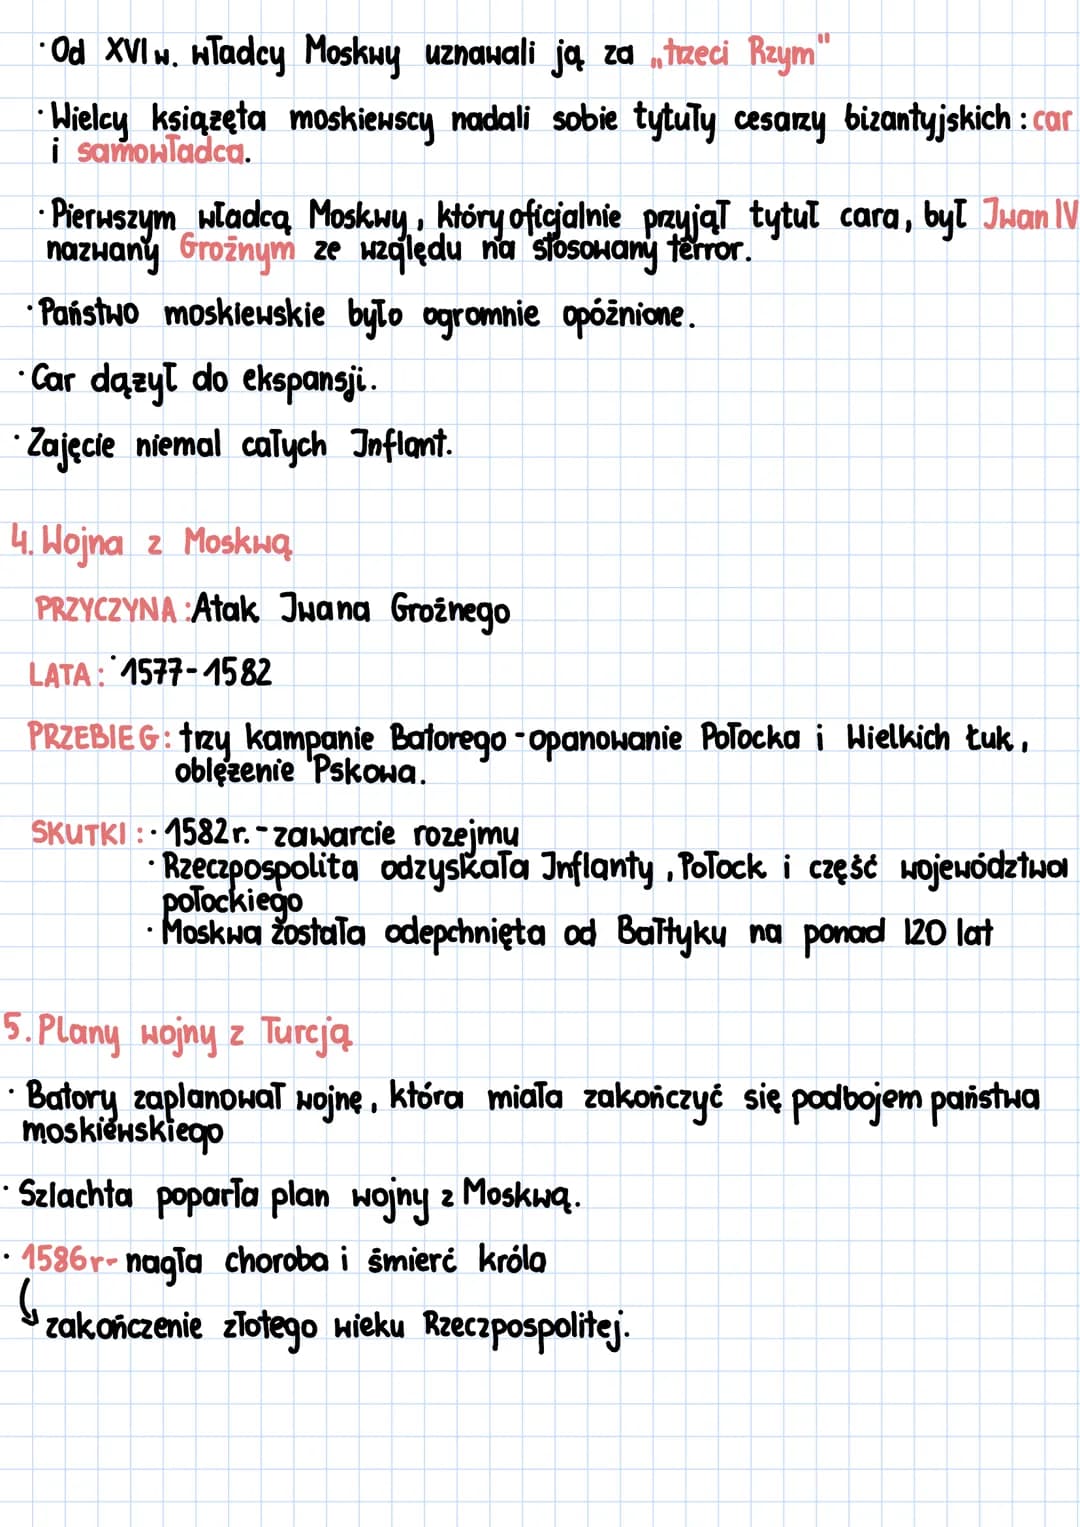 · Od XVI w. władcy Moskwy uznawali ją za „trzeci Rzym"
· Wielcy książęta moskiewscy nadali sobie tytuły cesarzy bizantyjskich : car
i samowładca.
· Pierwszym władcą Moskwy, który oficjalnie przyjął tytuł cara, był Iwan IV
nazwany Groźnym ze względu na stosowany terror.
· Państwo moskiewskie było ogromnie opóźnione.
· Car dążył do ekspansji.
· Zajęcie niemal całych Inflant.
4. Wojna z Moskwą
PRZYCZYNA : Atak Iwana Groźnego
LATA : · 1577-1582
PRZEBIEG : trzy kampanie Batorego - opanowanie Połocka i Wielkich Łuk,
oblężenie Pskowa.
SKUTKI : · 1582 r. - zawarcie rozejmu
· Rzeczpospolita odzyskała Inflanty, Połock i część województwa
połockiego
· Moskwa została odepchnięta od Bałtyku na ponad 120 lat
5. Plany wojny z Turcją
· Batory zaplanował wojnę, która miała zakończyć się podbojem państwa
moskiewskiego
· Szlachta poparła plan wojny z Moskwą.
· 1586r- nagła choroba i śmierć króla
↳ zakończenie złotego wieku Rzeczpospolitej.